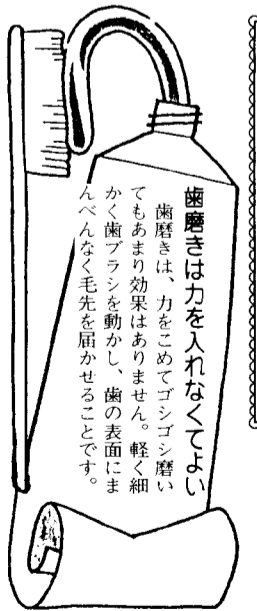 歯磨きは力を入れなくてよい
歯磨きは、力をこめてゴシゴシ磨い
てもあまり効果はありません。軽く細
かく歯ブラシを動かし、歯の表面にま
んべんなく毛先を届かせることです。